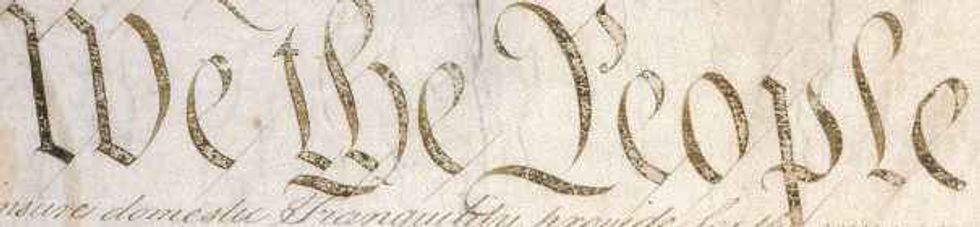 We the People
insure domestic Tranquility, provide for the